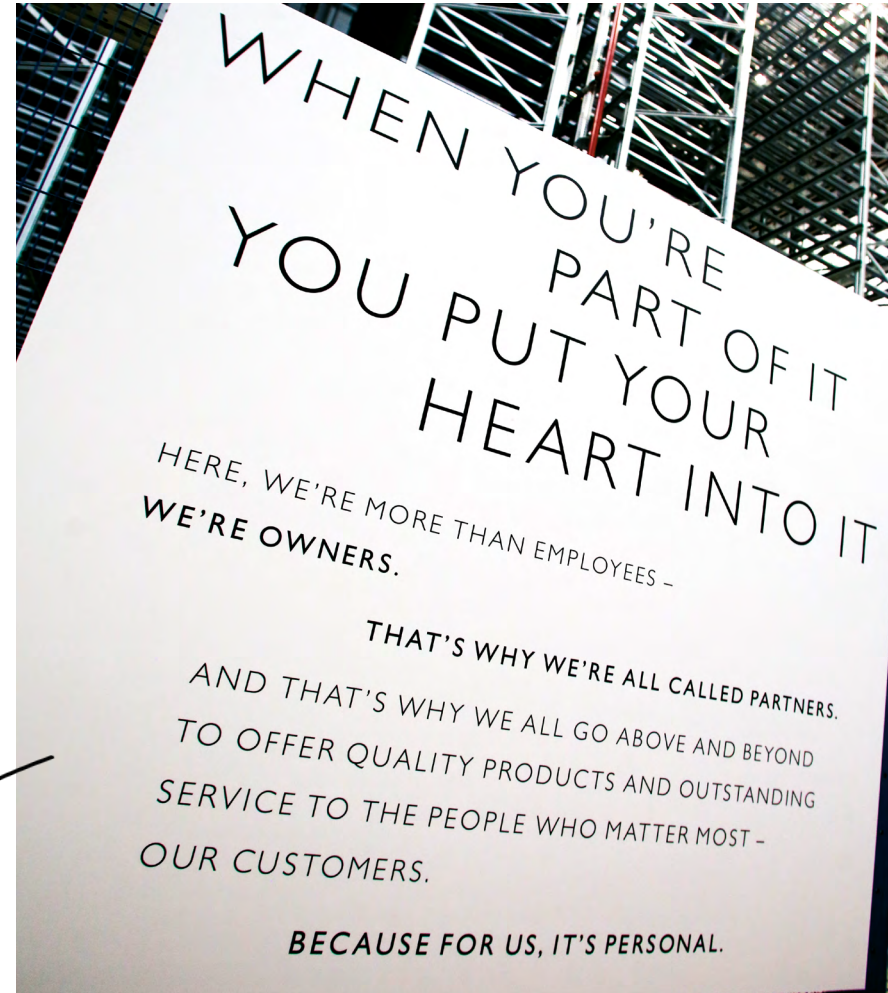 WHEN YOU'RE
PART OF IT
YOU PUT YOUR
HEART INTO IT
HERE, WE'RE MORE THAN EMPLOYEES –
WE'RE OWNERS.
THAT'S WHY WE'RE ALL CALLED PARTNERS.
AND THAT'S WHY WE ALL GO ABOVE AND BEYOND
TO OFFER QUALITY PRODUCTS AND OUTSTANDING
SERVICE TO THE PEOPLE WHO MATTER MOST –
OUR CUSTOMERS.
BECAUSE FOR US, IT'S PERSONAL.